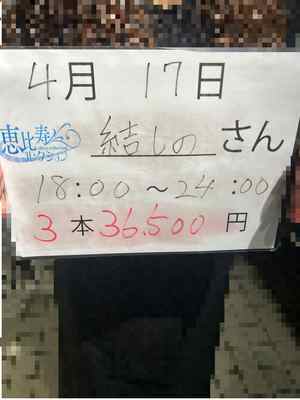 4月 17日
恵比寿
コレクション
結しの さん
18:00 ～24:00
3 本 36.500 円